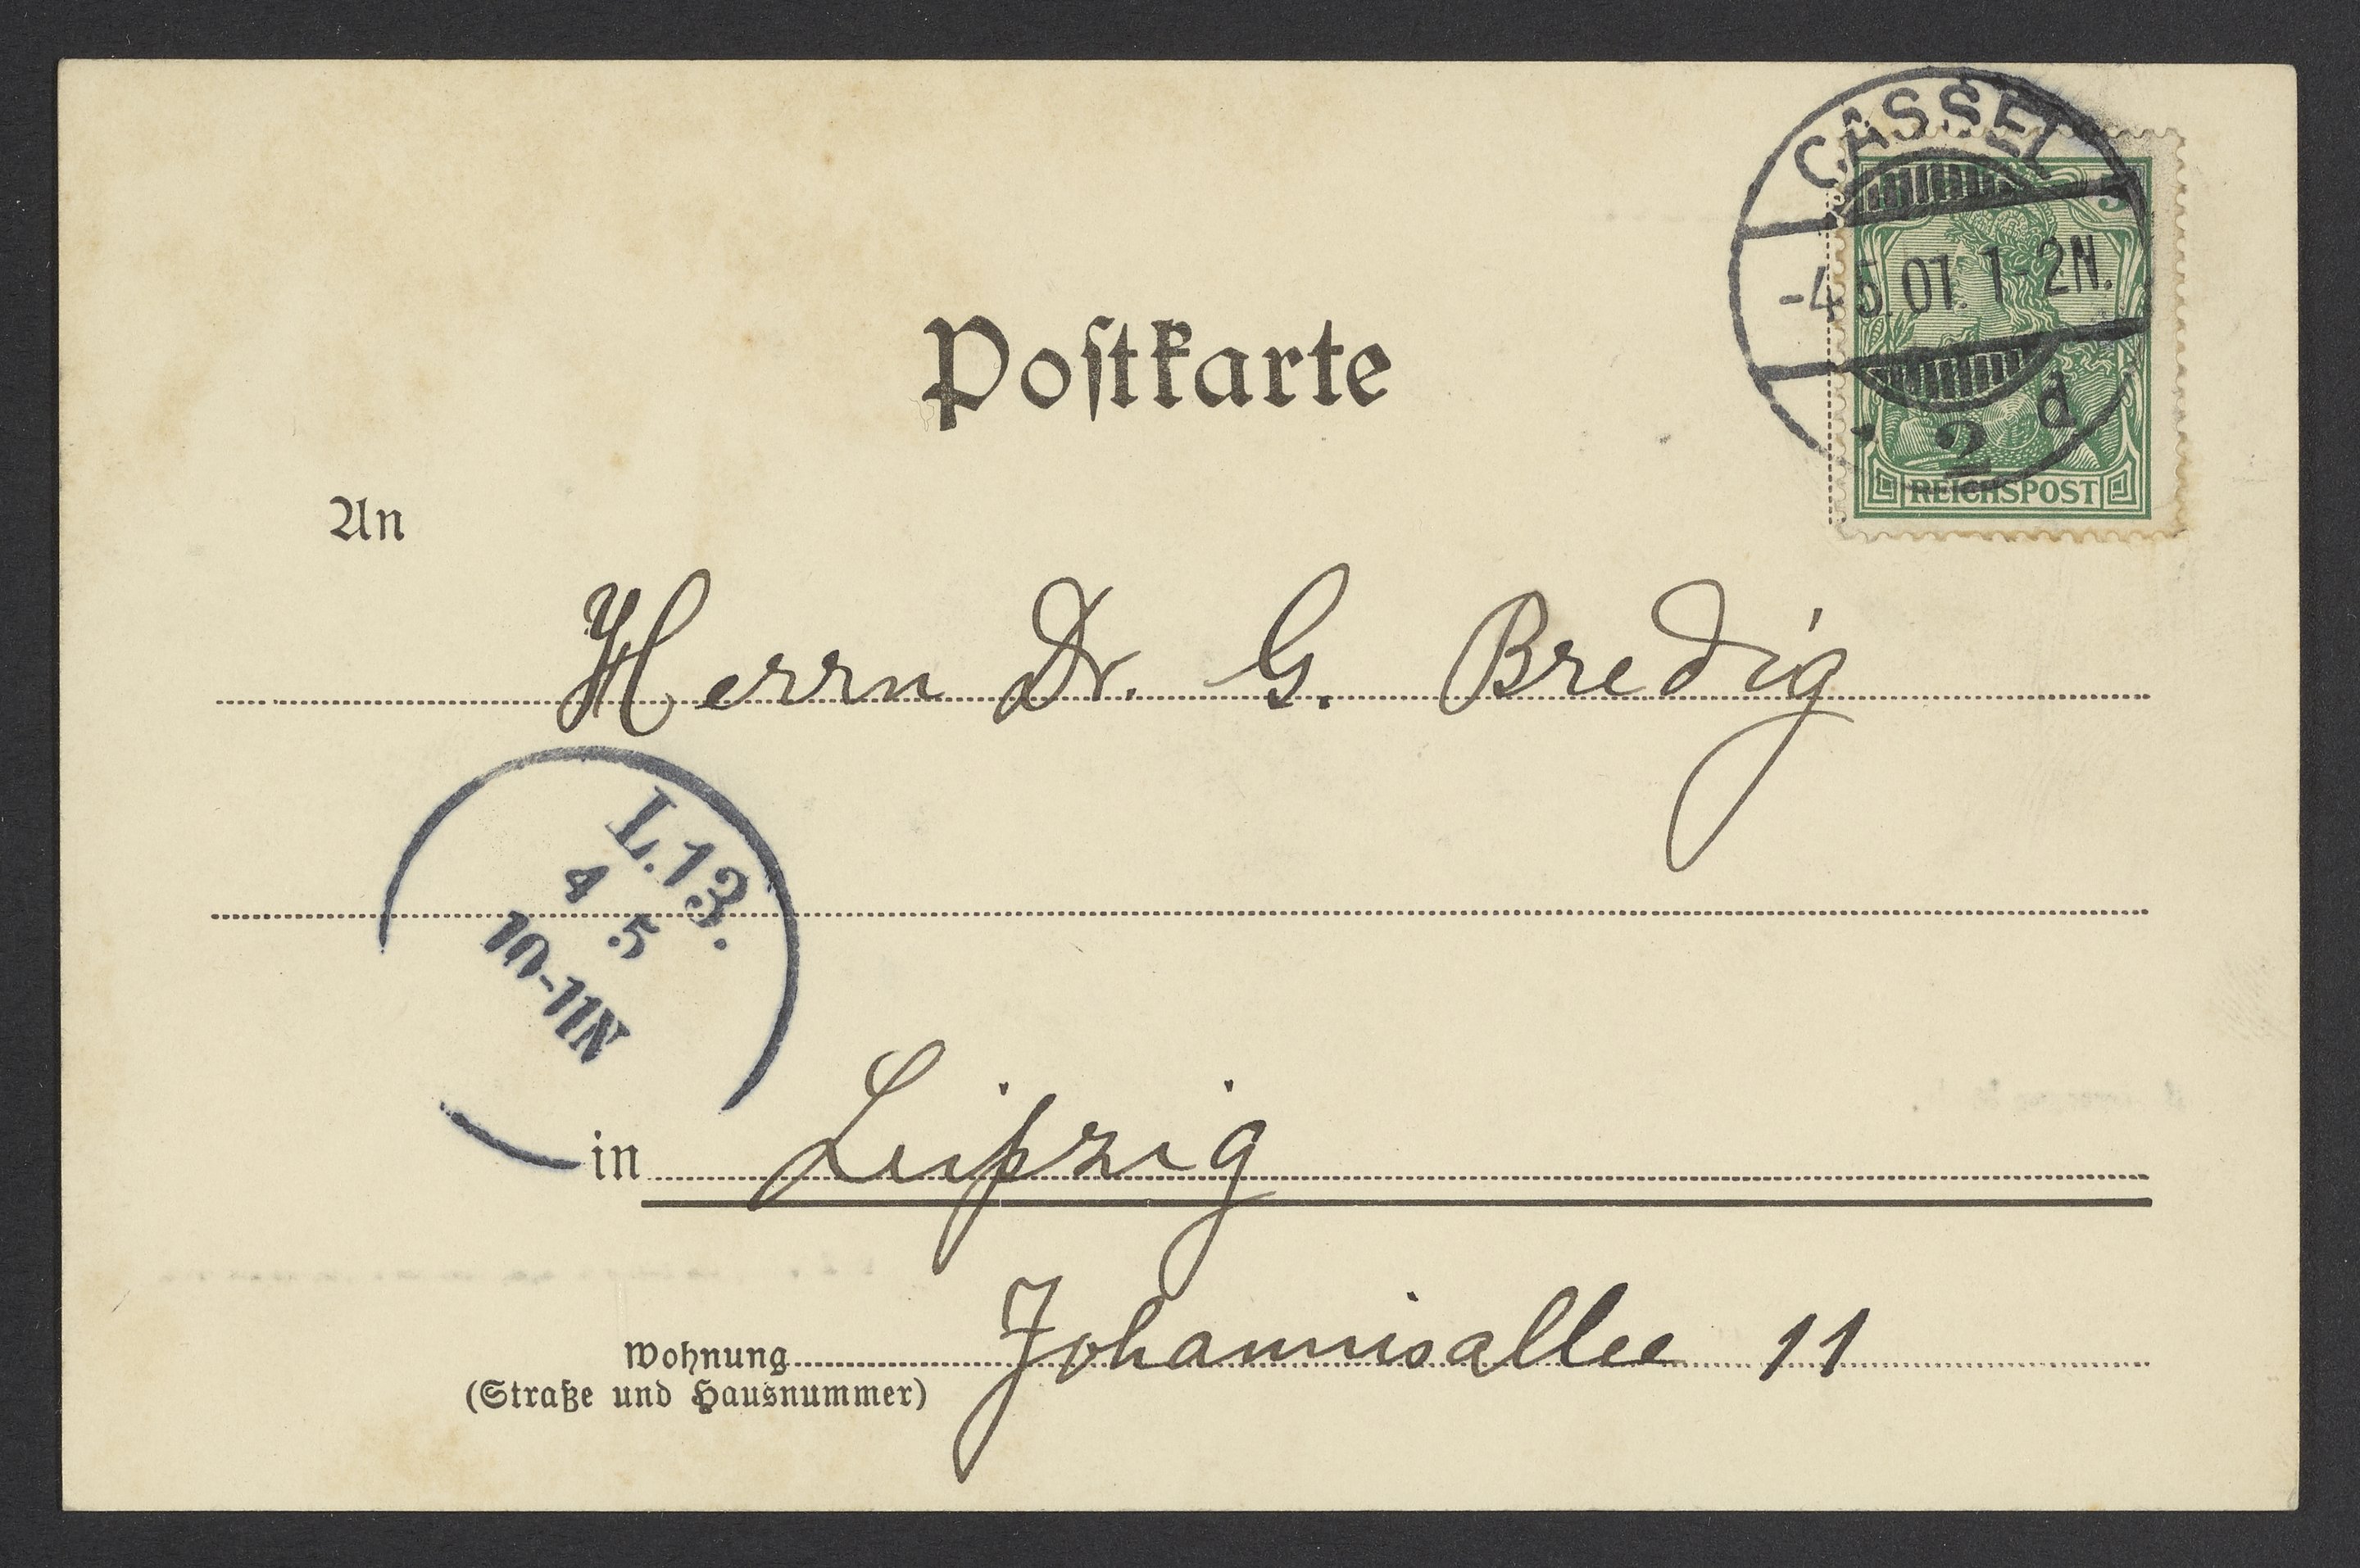 CASSEL
-4.5.01.1-2N.
* 2 d
5
REICHSPOST
Postkarte
An
Herrn Dr. G. Bredig
L.13.
4 5
10-11N
in Leipzig
Wohnung Johannisallee 11
(Straße und Hausnummer)